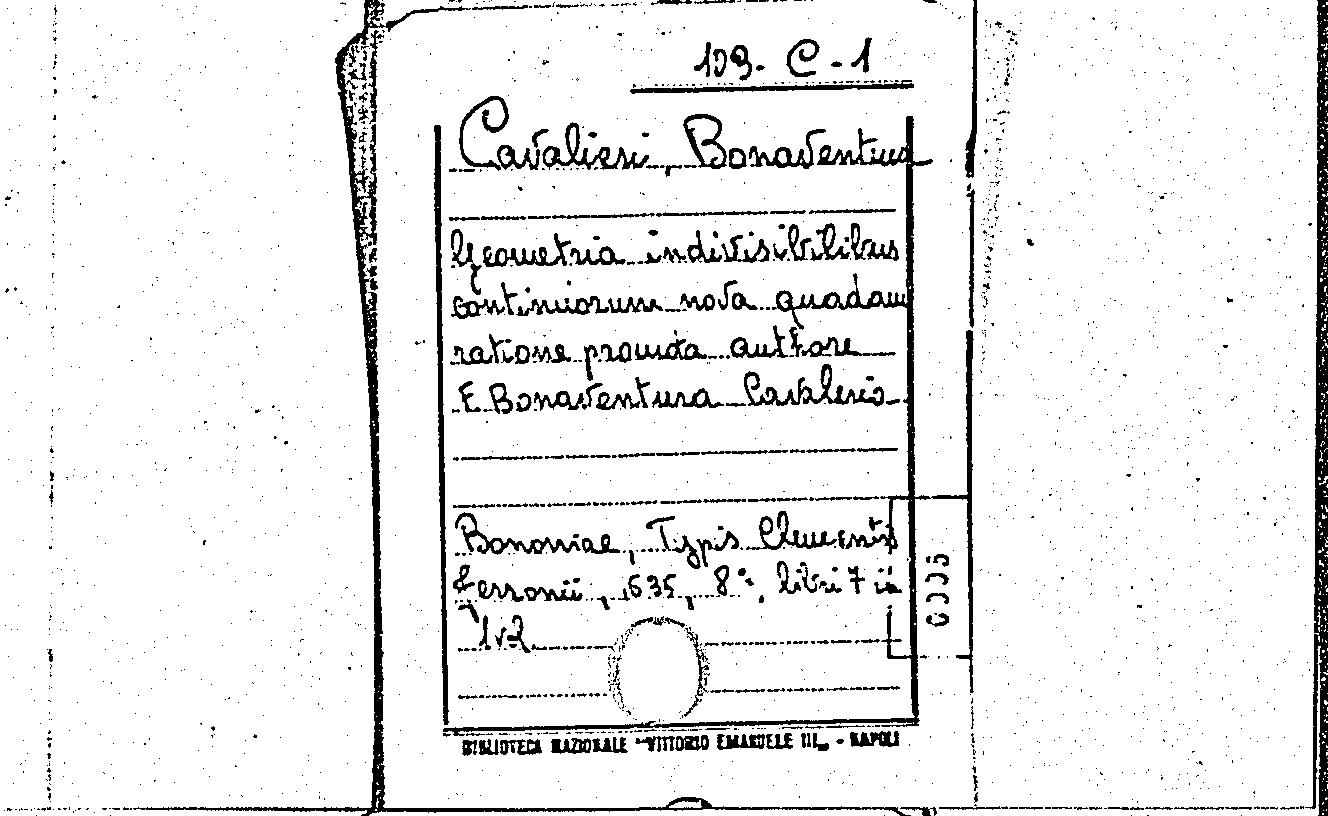 109-C-1
Cavalieri, Bonaventura
Geometria indivisibilibus
continuorum nova quadam
ratione promota authore
F. Bonaventura Cavalerio
Bononiae, Typis Clementis
Ferronii, 1635, 8°, libri 7 in
1 v2.
0005
BIBLIOTECA NAZIONALE "VITTORIO EMANUELE III„ - NAPOLI